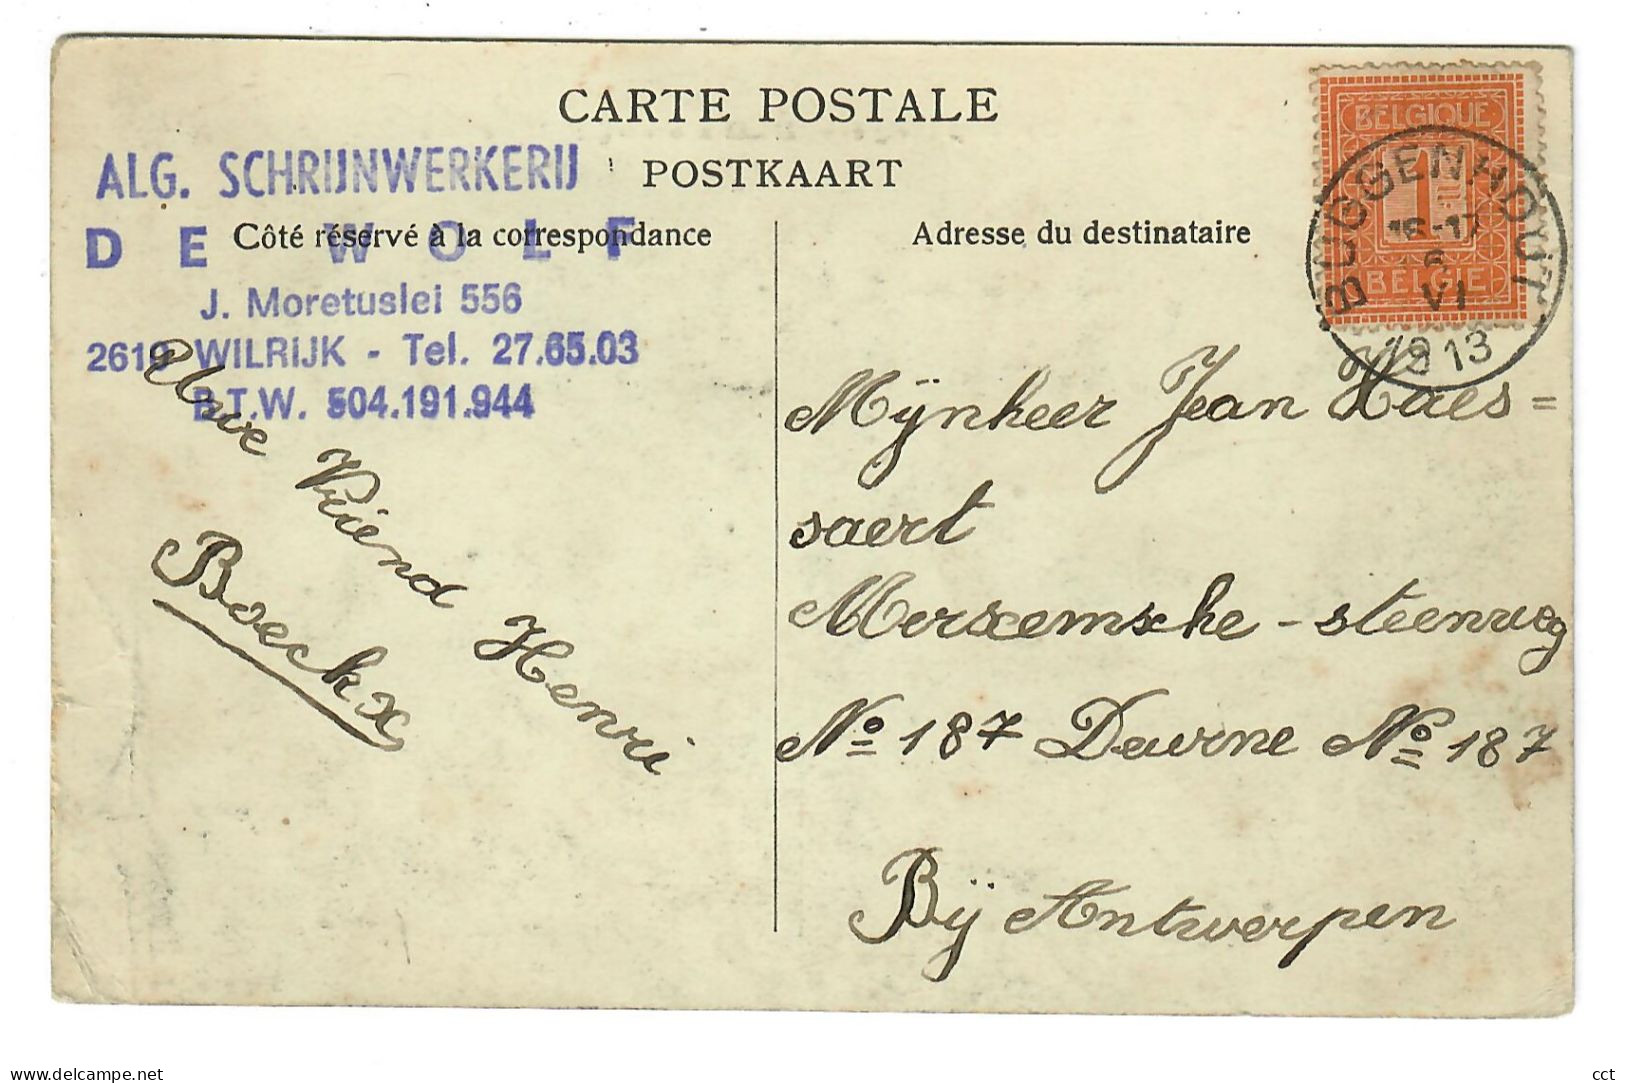 CARTE POSTALE
POSTKAART
ALG. SCHRIJNWERKERIJ
DE WOLF
J. Moretuslei 556
2610 WILRIJK - Tel. 27.65.03
B.T.W. 504.191.944
Côté réservé à la correspondance
Adresse du destinataire
BELGIQUE
1
BELGIË
BUGGENHOUT
16-17
6
VI
1913
Uwe Vriend Henri
Boeckx
Mÿnheer Jean Haes=
saert
Merxemsche - steenweg
No 187 Deurne No 187
Bÿ Antwerpen
delcampe.net
cct